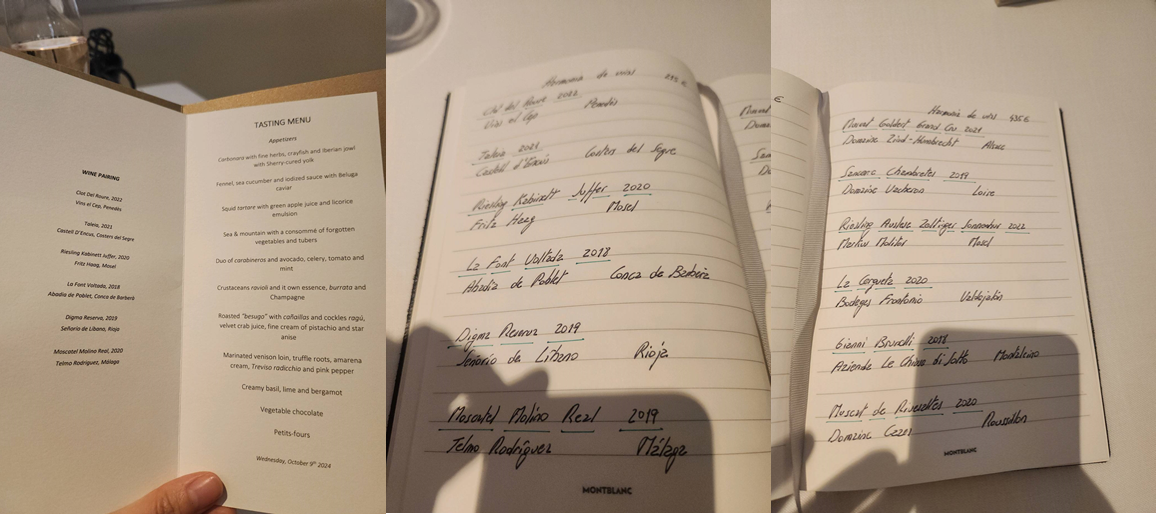 WINE PAIRING
Clot Del Roure, 2022
Vins el Cep, Penedès
Taleia, 2021
Castell D'Encus, Costers del Segre
Riesling Kabinett Juffer, 2020
Fritz Haag, Mosel
La Font Voltada, 2018
Abadia de Poblet, Conca de Barberà
Digma Reserva, 2019
Señorío de Líbano, Rioja
Moscatel Molino Real, 2020
Telmo Rodríguez, Málaga
TASTING MENU
Appetizers
Carbonara with fine herbs, crayfish and Iberian jowl
with Sherry-cured yolk
Fennel, sea cucumber and iodized sauce with Beluga
caviar
Squid tartare with green apple juice and licorice
emulsion
Sea & mountain with a consommé of forgotten
vegetables and tubers
Duo of carabineros and avocado, celery, tomato and
mint
Crustaceans ravioli and it own essence, burrata and
Champagne
Roasted "besugo" with cañaillas and cockles ragú,
velvet crab juice, fine cream of pistachio and star
anise
Marinated venison loin, truffle roots, amarena
cream, Treviso radicchio and pink pepper
Creamy basil, lime and bergamot
Vegetable chocolate
Petits-fours
Wednesday, October 9th 2024
Harmonía de vins
Clot del Roure 2022
Vins el Cep Penedès
Taleia 2021
Castell d'Encús Costers del Segre
Riesling Kabinett Juffer 2020
Fritz Haag Mosel
La Font Voltada 2018
Abadia de Poblet Conca de Barberà
Digma Reserva 2019
Señorío de Líbano Rioja
Moscatel Molino Real 2019
Telmo Rodríguez Málaga
MONTBLANC
Harmonía de vins 435€
Muscat Goldert Grand Cru 2021
Domaine Zind-Humbrecht Alsace
Sancerre 2019
Domaine Vacheron Loire
Riesling Auslese Zeltinger Sonnenuhr 2022
Markus Molitor Mosel
La Cerqueta 2020
Bodegas Frontonio Valdejalón
Gianni Brunelli 2018
Aziende Le Chiuse di Sotto Montalcino
Muscat de Rivesaltes 2020
Domaine Cazes Roussillon
MONTBLANC